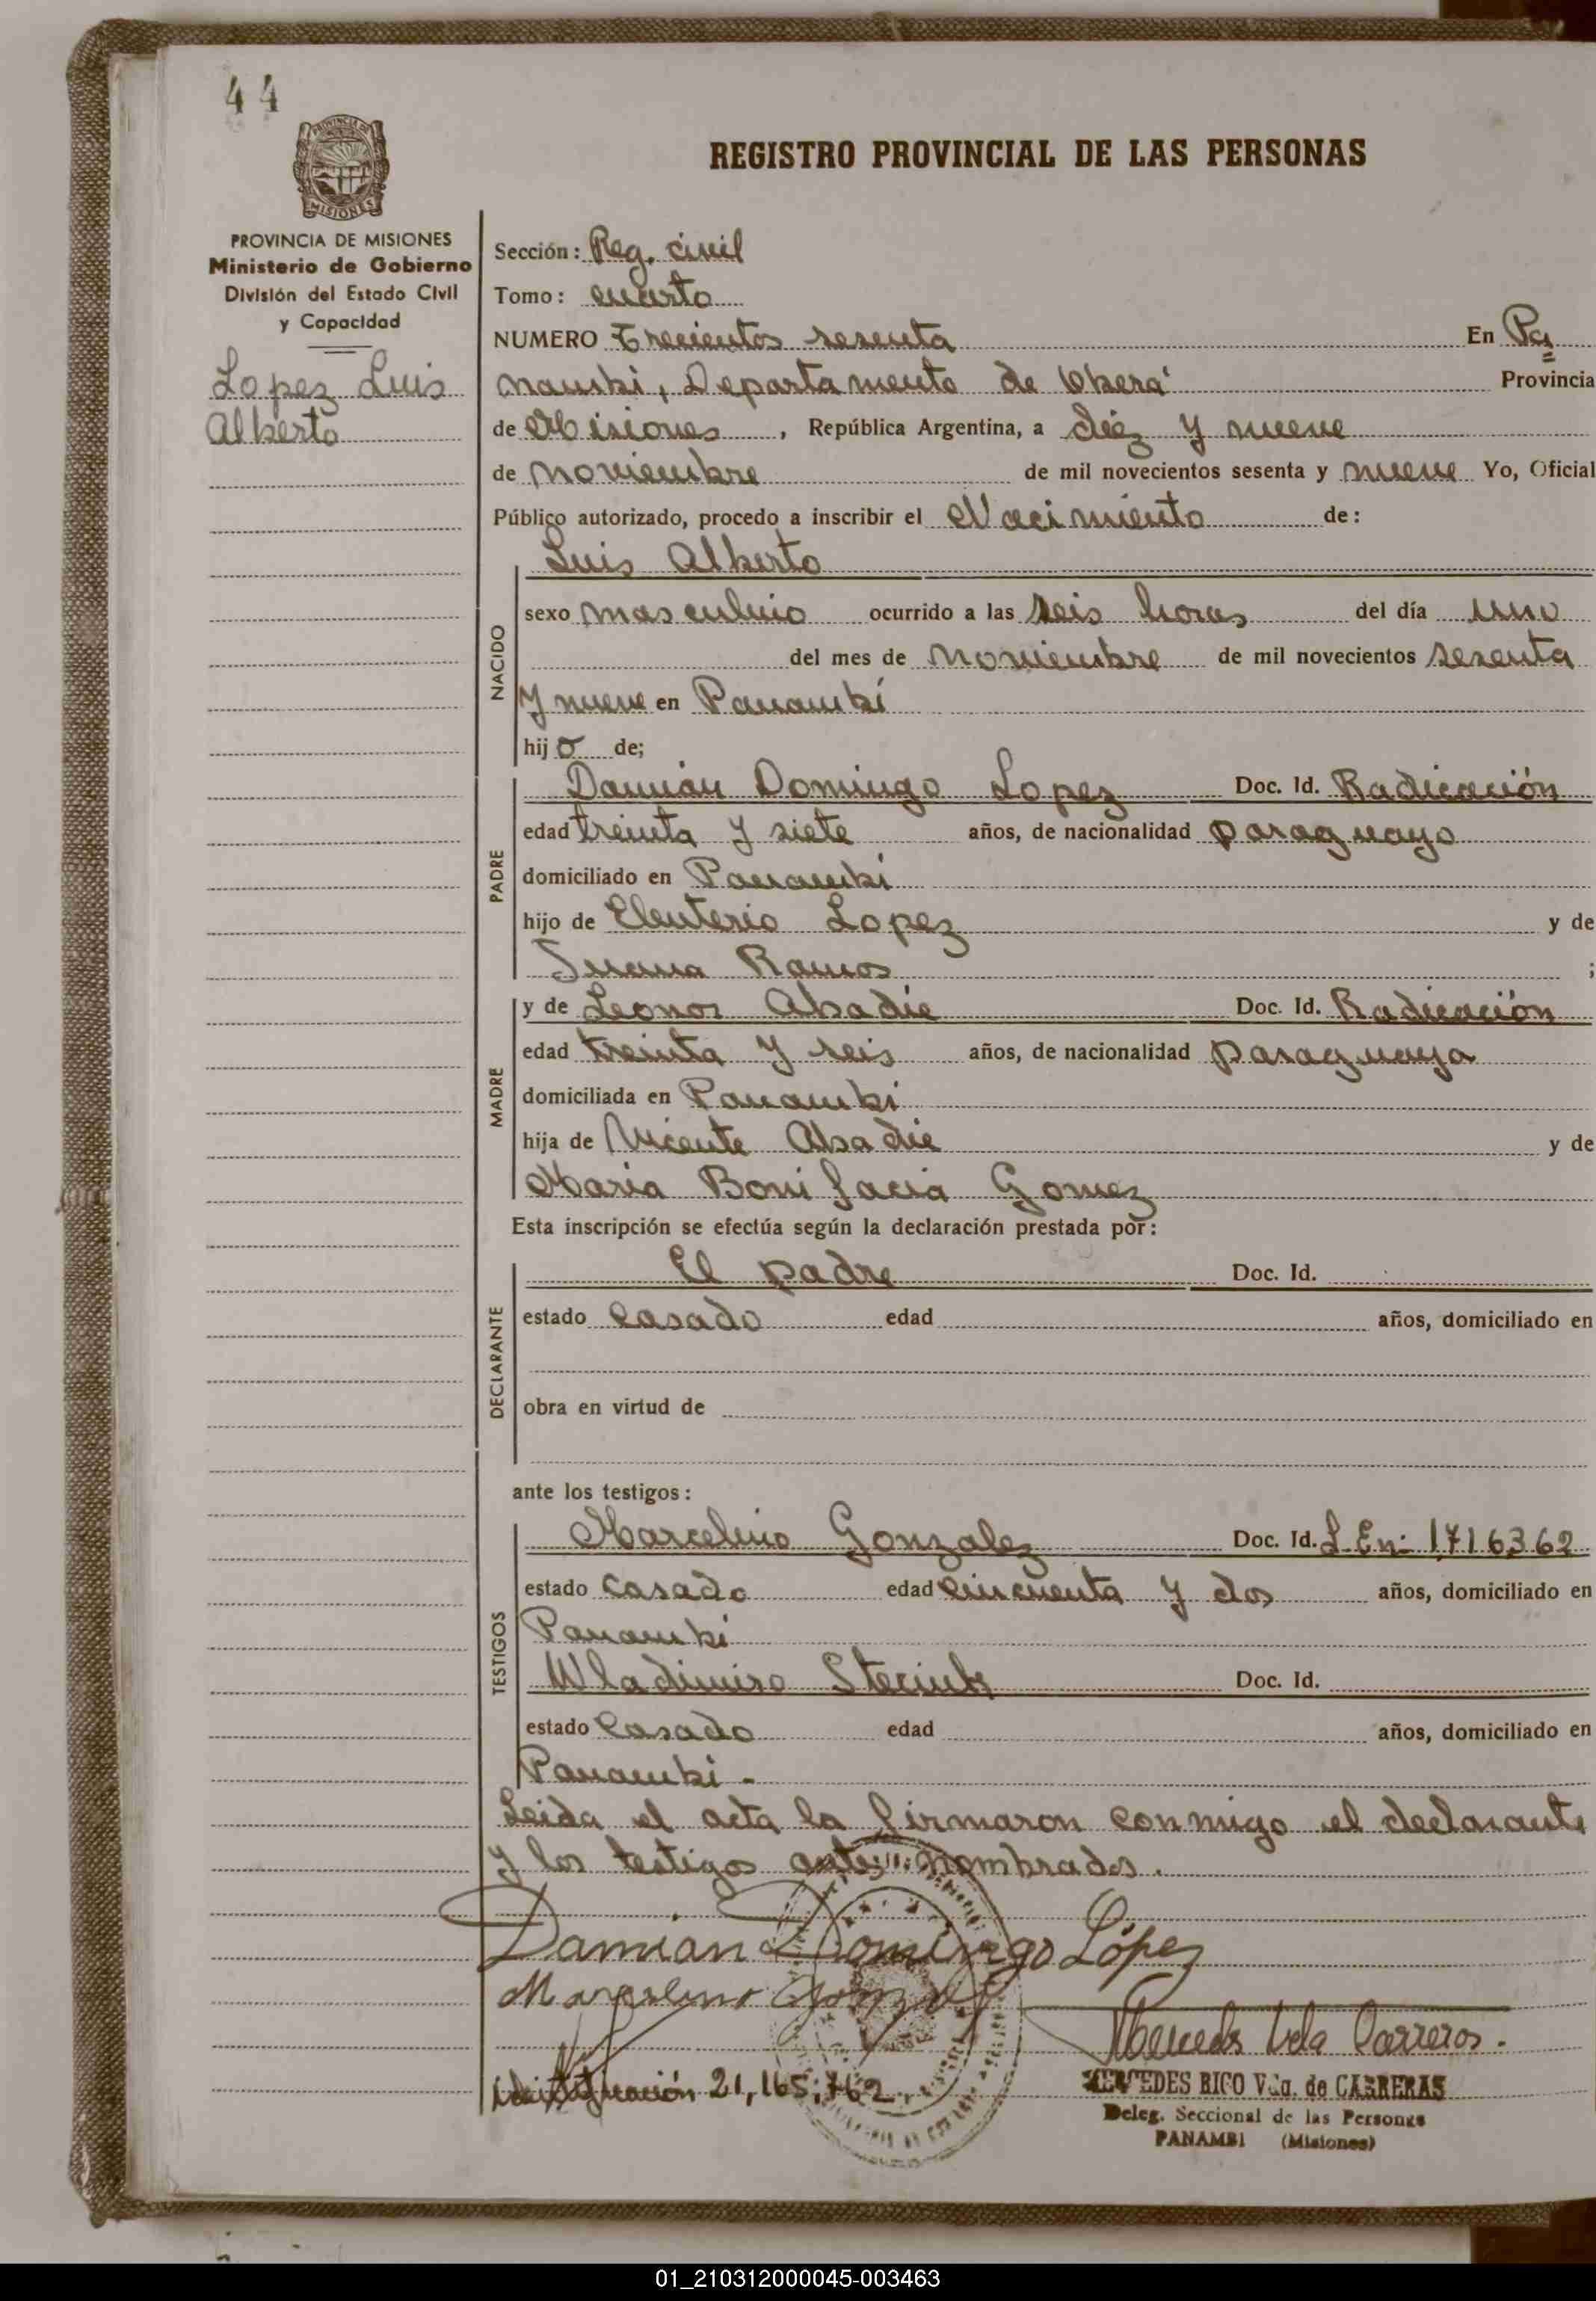 44
REGISTRO PROVINCIAL DE LAS PERSONAS
PROVINCIA DE MISIONES
Ministerio de Gobierno
División del Estado Civil
y Capacidad
Lopez Luis
Alberto
Sección: Reg. civil
Tomo: cuarto
NUMERO Trecientos sesenta En Pa
nambi, Departamento de Obera Provincia
de Misiones, República Argentina, a diez y nueve
de noviembre de mil novecientos sesenta y nueve Yo, Oficial
Público autorizado, procedo a inscribir el Nacimiento de:
Luis Alberto
NACIDO
sexo masculino ocurrido a las seis horas del día uno
del mes de noviembre de mil novecientos sesenta
y nueve en Panambí
hijo de;
PADRE
Damián Domingo Lopez Doc. Id. Radicación
edad treinta y siete años, de nacionalidad paraguayo
domiciliado en Panambí
hijo de Eleuterio Lopez y de
Juana Ramos ;
MADRE
y de Leonor Abadie Doc. Id. Radicación
edad treinta y seis años, de nacionalidad paraguaya
domiciliada en Panambi
hija de Vicente Abadie y de
Maria Bonifacia Gomez
Esta inscripción se efectúa según la declaración prestada por:
DECLARANTE
El padre Doc. Id.
estado casado edad años, domiciliado en
obra en virtud de
ante los testigos:
TESTIGOS
Marcelino Gonzalez Doc. Id. L.En: 1716362
estado casado edad cincuenta y dos años, domiciliado en
Panambi
Wladimiro Doc. Id.
estado casado edad años, domiciliado en
Panambi -
Leida el acta la firmaron conmigo el declarante
y los testigos ante nombrados.
Damian Domingo López
Marcelino Gonzalez
Mercedes Vda Carreras.
21,165,762
MERCEDES RICO Vda. de CARRERAS
Deleg. Seccional de las Personas
PANAMBI (Misiones)
01_210312000045-003463